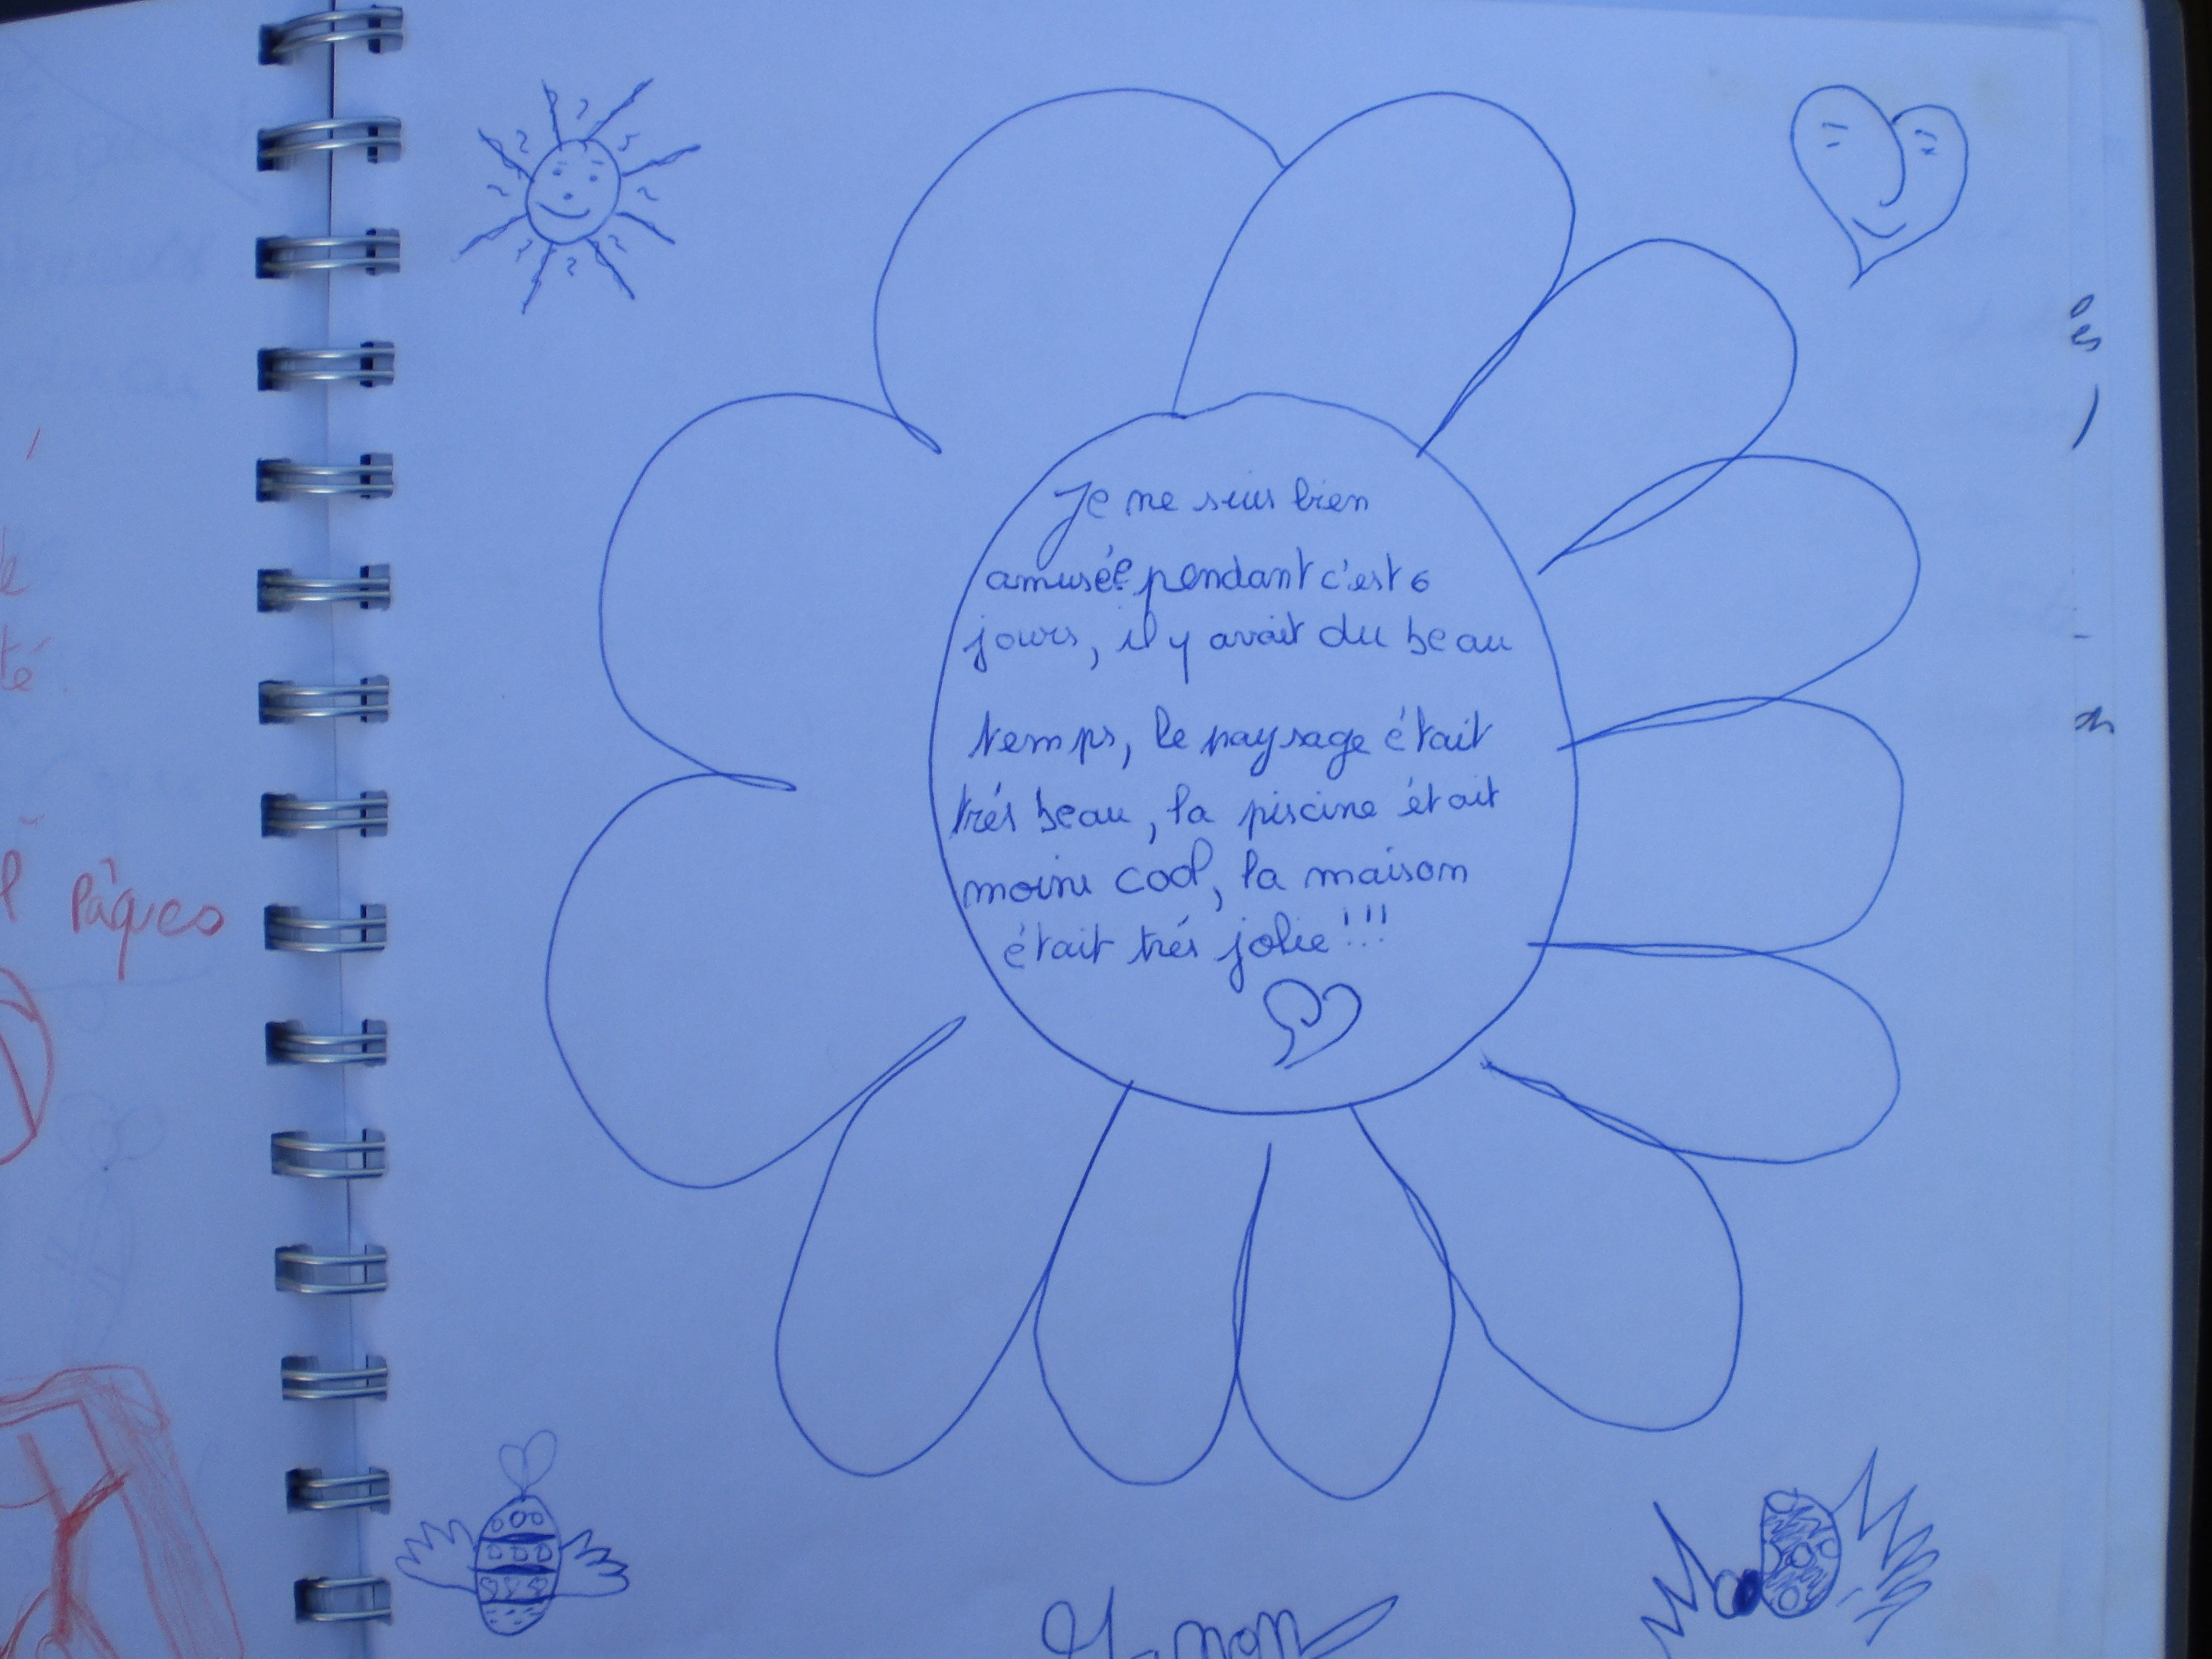 Je me suis bien
amusée pendant c'est 6
jours, il y avait du beau
temps, le paysage était
trés beau, la piscine était
moins cool, la maison
était trés jolie !!!
Manon
Pâques
té.